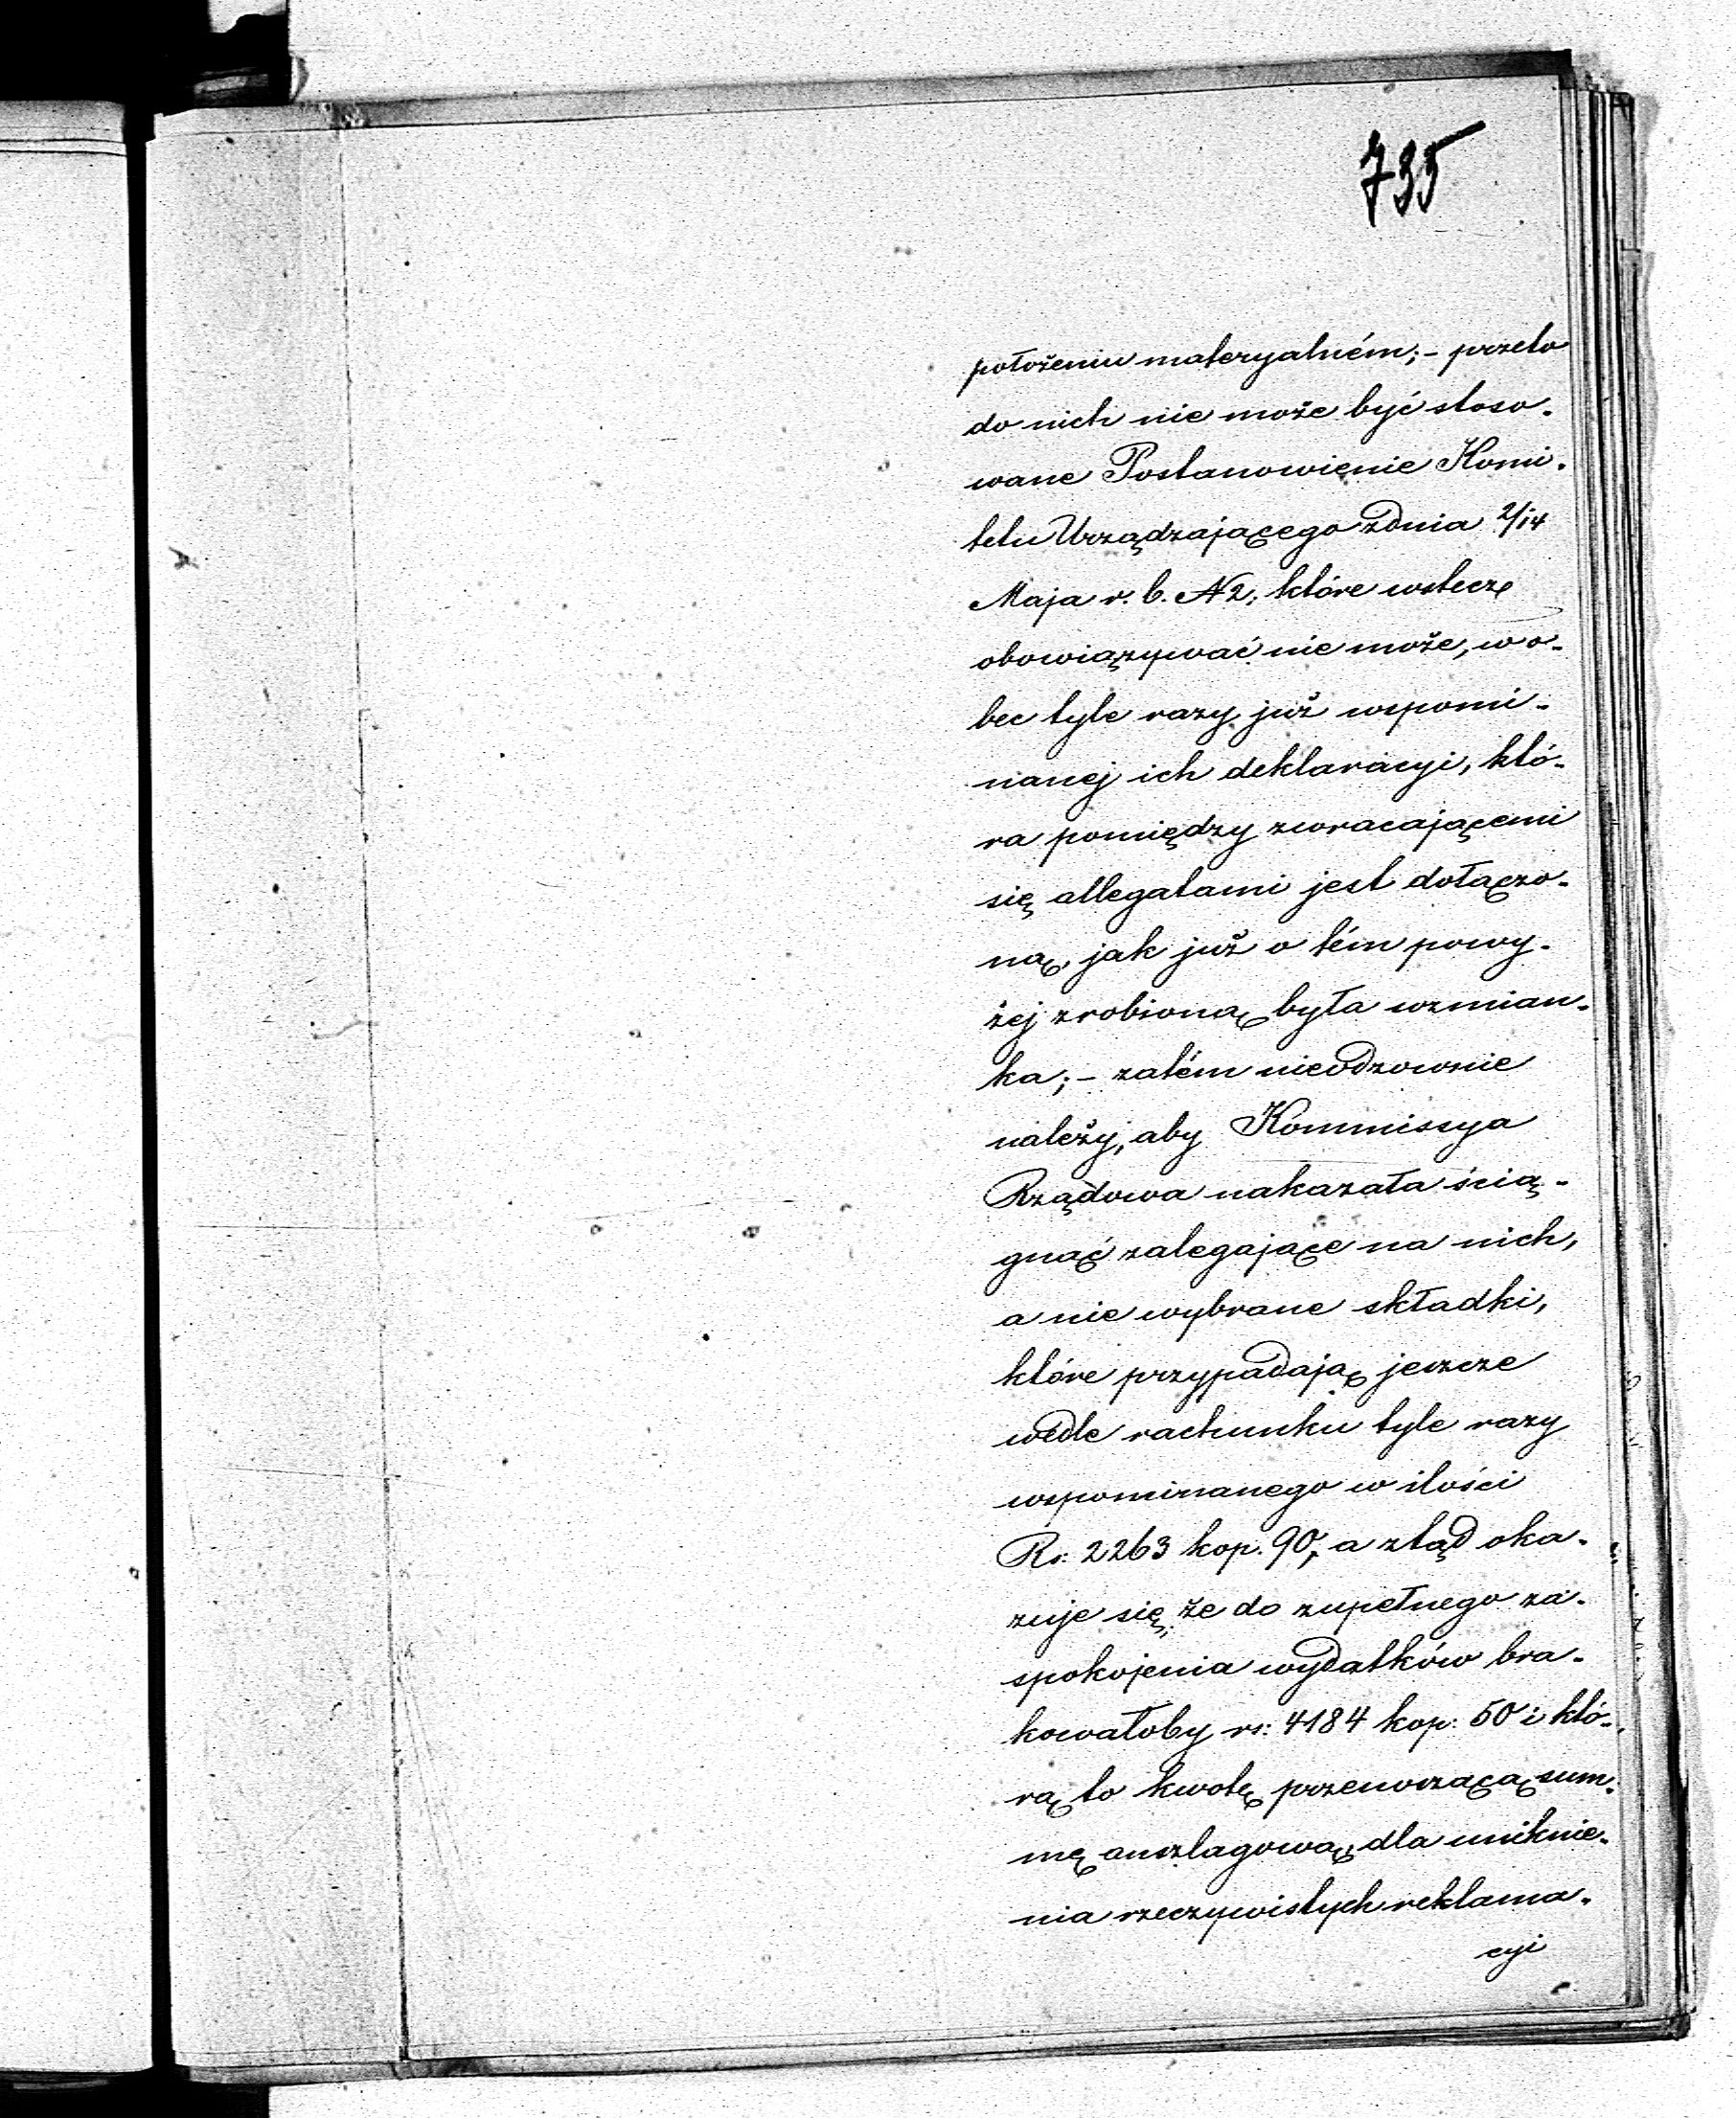 735
położeniu materyalném; - przeto
do nich nie może być stoso-
wane Postanowienie Komi-
tetu Urządzającego z dnia 2/14
Maja r. b. N 2, które wstecz
obowiązywać nie może, wo-
bec tyle razy już wspomi-
nanej ich deklaracyi, któ-
ra pomiędzy zwracającemi
się allegatami jest dołączo-
ną, jak już o tém powy-
żej zrobioną była wzmian-
ka; - zatém nieodzownie
należy, aby Kommissya
Rządowa nakazała ścią-
gnąć zalegające na nich,
a nie wybrane składki,
które przypadają jeszcze
wedle rachunku tyle razy
wspominanego w ilości
Rs: 2263 kop. 90, a ztąd oka-
zuje się, że do zupełnego za-
spokojenia wydatków bra-
kowałoby rs: 4184 kop: 50 i któ-
rą to kwotę przenoszącą sum-
mę anszlagową, dla uniknie-
nia rzeczywistych reklama-
cyi